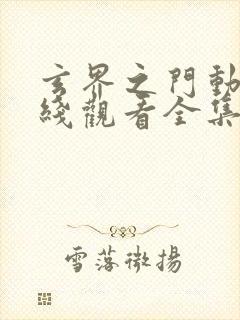 玄界之門動
綫觀看全集
雪落微揚